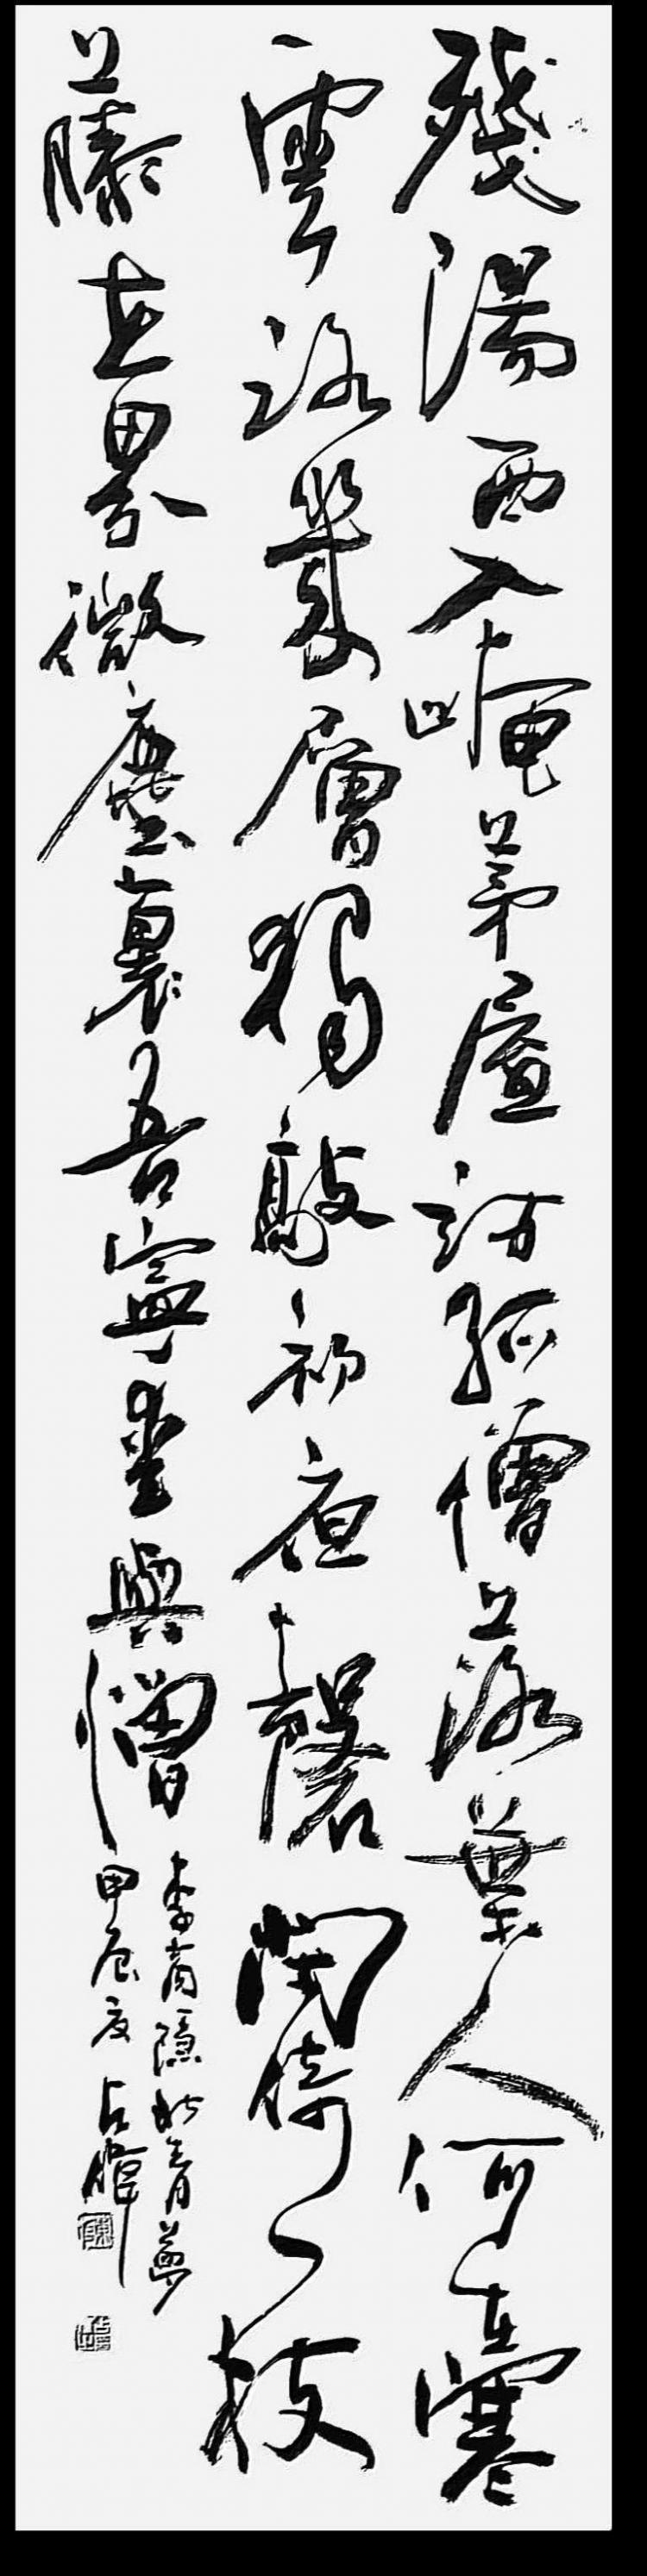 殘陽西入崦茅屋訪孤僧落葉人何在寒
雲路幾層獨敲初夜磬閑倚一枝
藤世界微塵裏吾寧愛與憎
李商隱北青蘿
甲辰夏